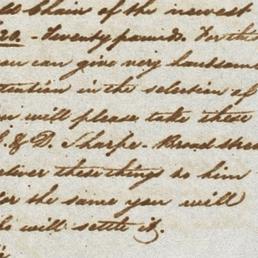 Chain of the newest
20. - Twenty pounds. For this
you can give very handsome
attention in the selection of
you will please take these
& D. Sharpe - Broad Street
deliver these things to him
for the same you will
who will settle it.